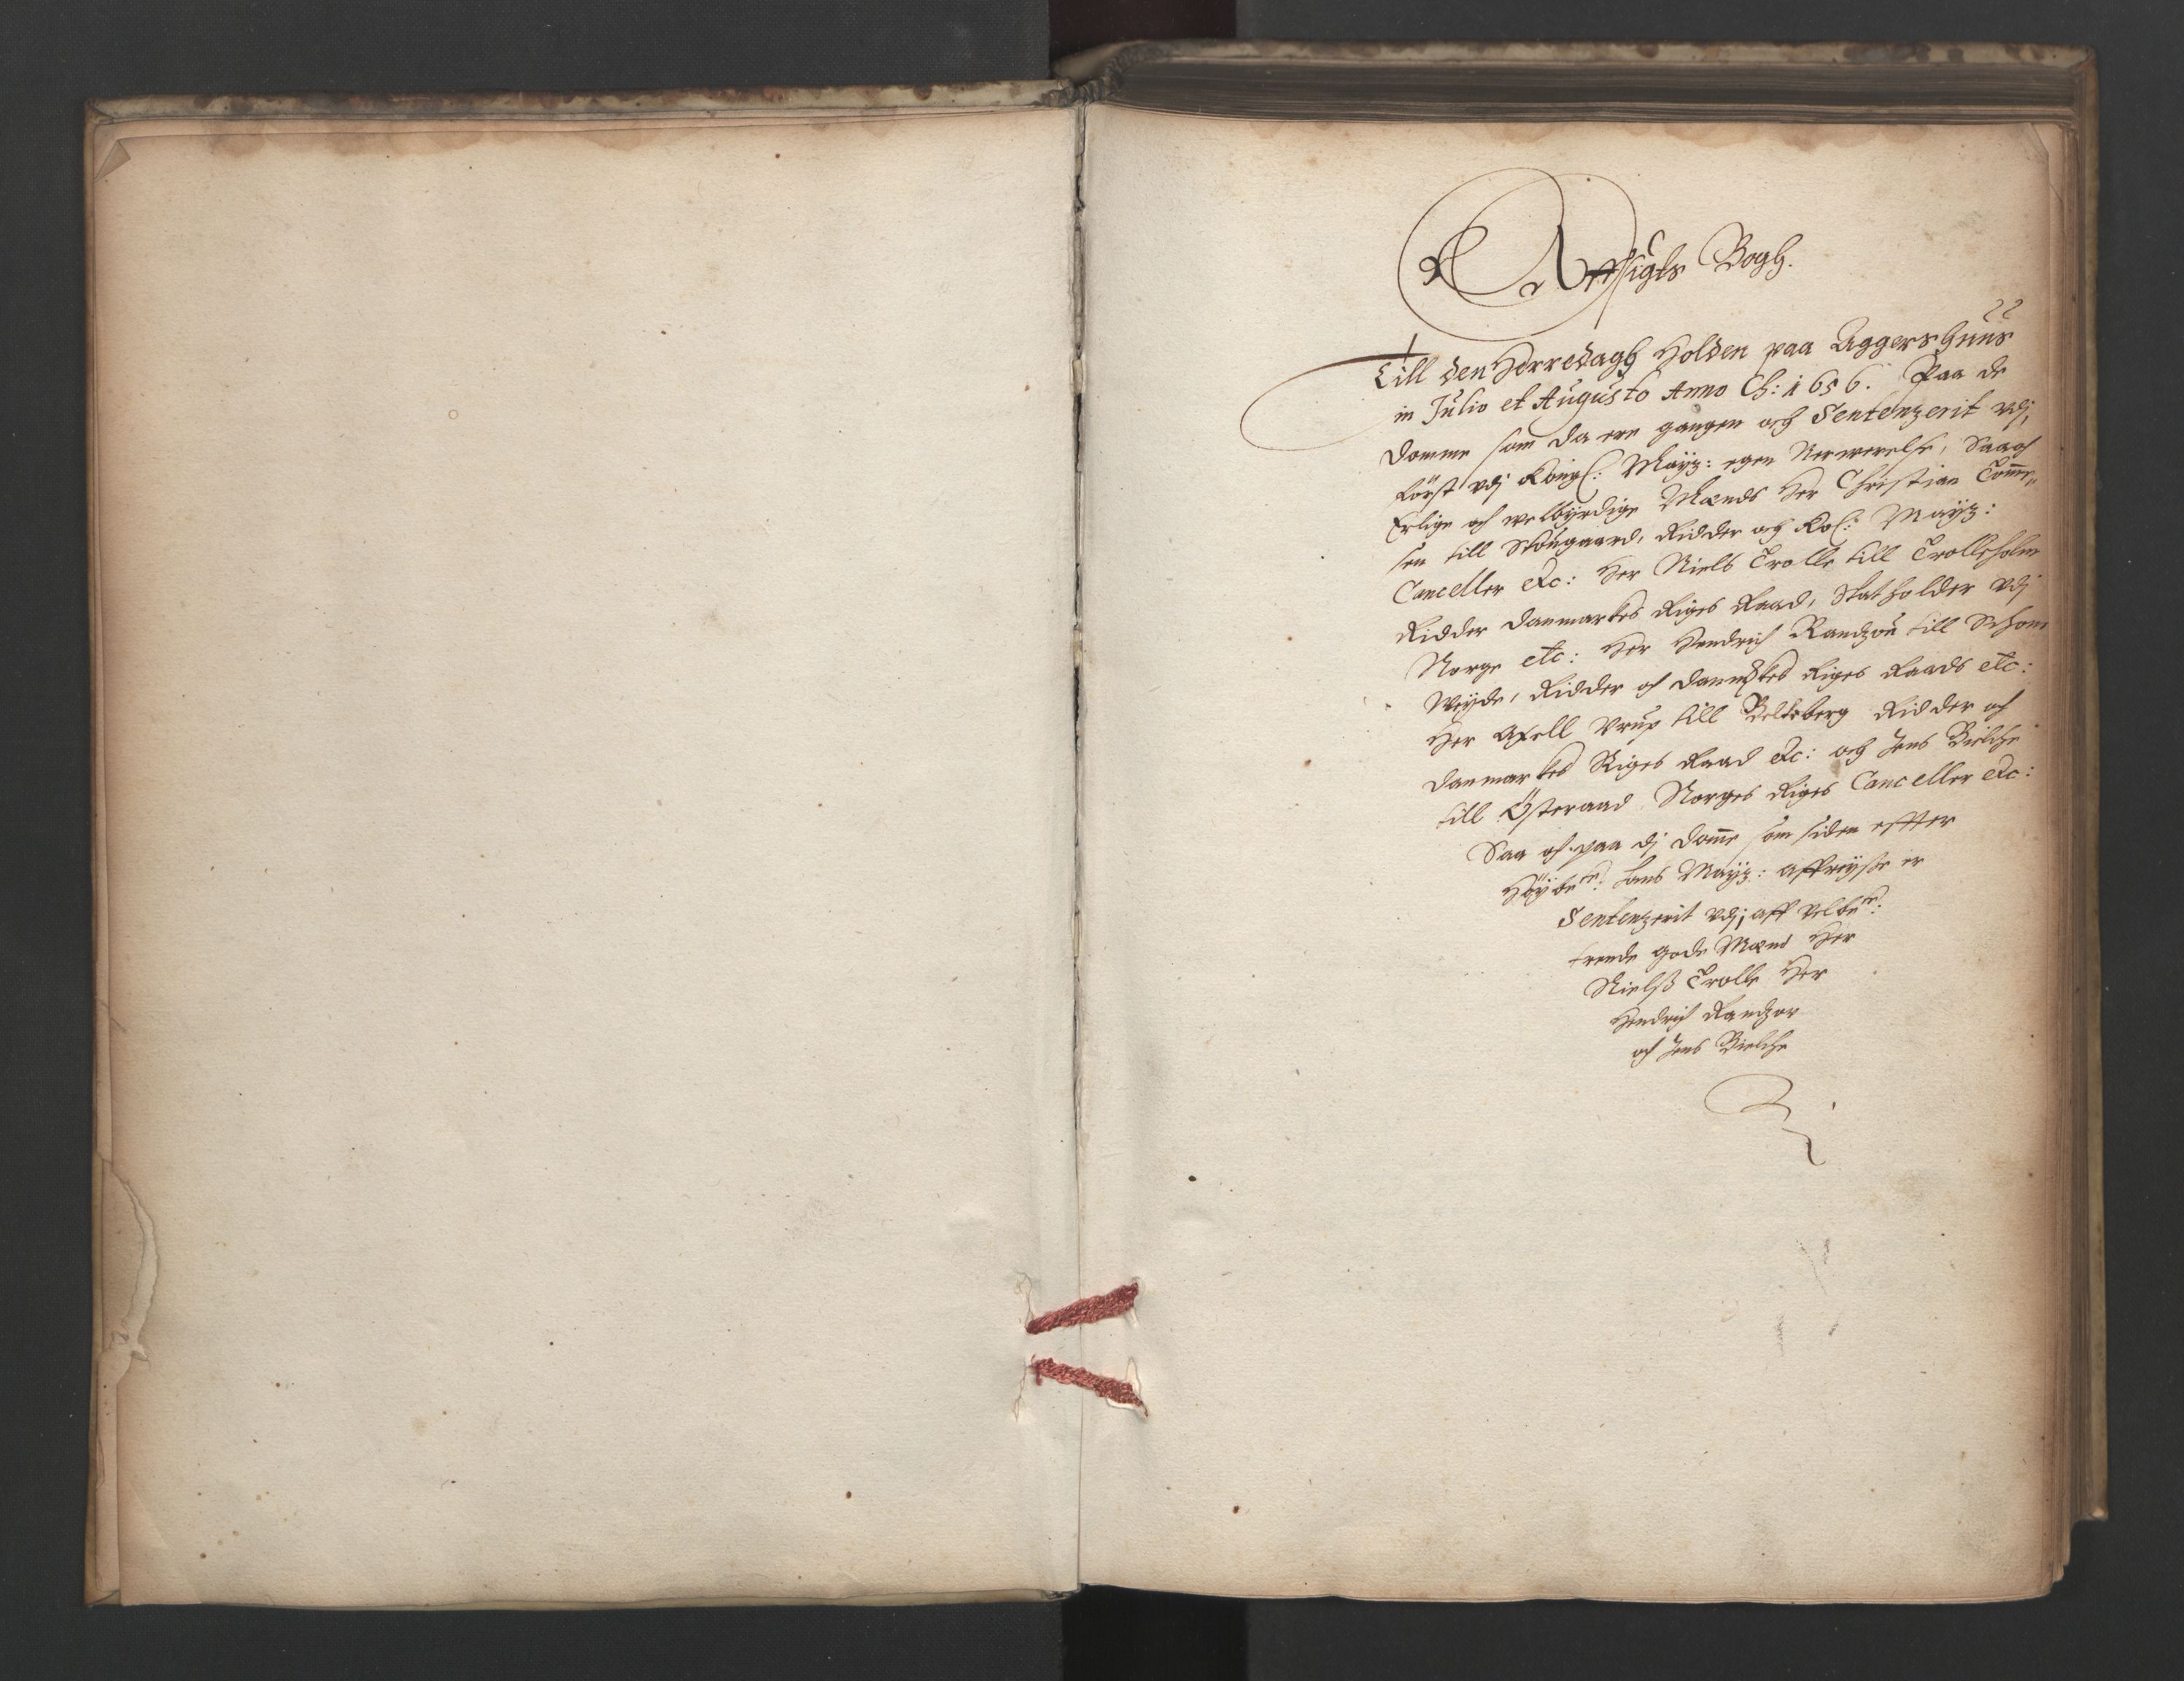 Affsigts Bogh.
Till den Herredagh Holden paa Aggershuus
in Julio et Augusto Anno Ch: 1656. Paa de
Domme som da ere gangen och Sentenzerit vdj,
først vdj Kongl: Mayz: egen Nerwerelse, Saa och
Erlige och welbyrdige Mænds Her Christian Tomme„
sen till Stougaard, Ridder och Kol: Mayz:
Canceller etc: Her Niels Trolle till Trolleholm
Ridder Danmarkes Riges Raad, Statholder vdj
Norge etc: Her Hendrich Randzou till Schön
Weyde, Ridder och Danmarkes Riges Raads etc:
Her Axell Vrup till Belteberg Ridder och
Danmarkes Riges Raad etc: och Jens Bielche
till Østeraad Norges Riges Canceller etc:
Saa och paa dj Dome som siden effter
Høybete: hans Mayz: affreyse er
Sentenzerit vdj, aff velbete:
trende gode Mænd Her
Nielss Trolle Her
Hendrich Randzow
och Jens Bielche